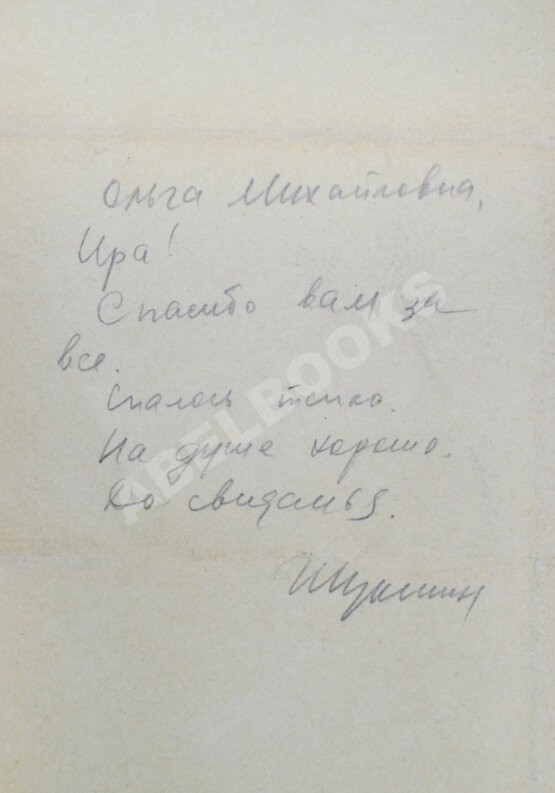 Ольга Михайловна,
Ира!
Спасибо вам за
все.
Спалось тепло.
На душе хорошо.
До свиданья.
Шукшин
ABELBOOKS